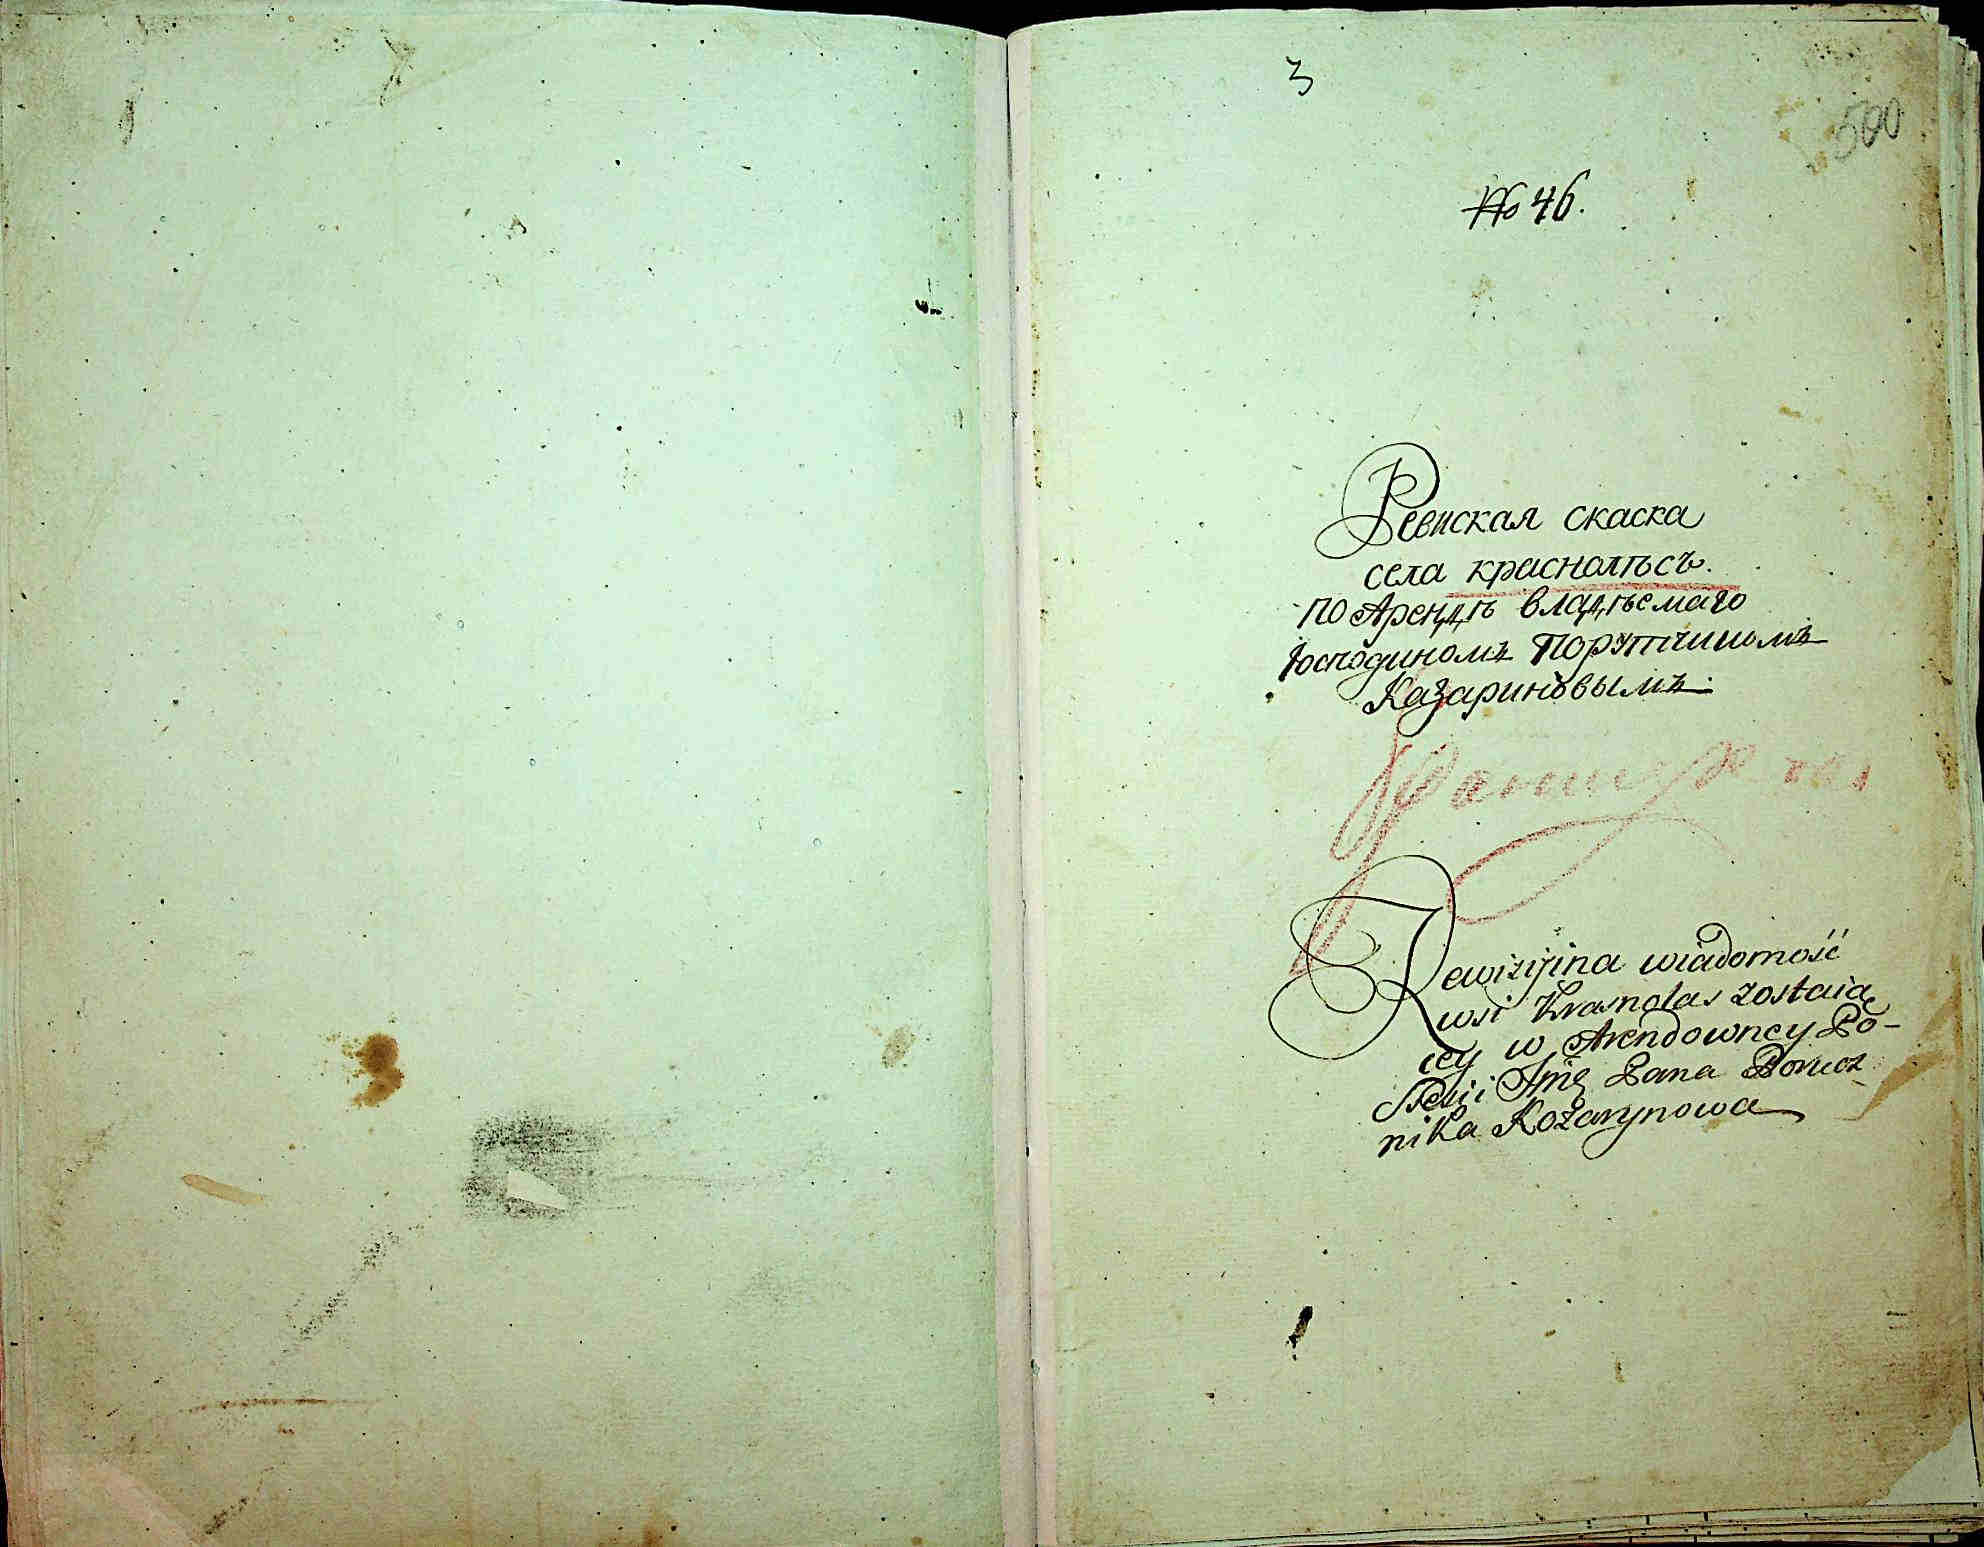 3
500
No 46.
Ревиская скаска
села краснолѣсъ.
по Арендѣ владѣемаго
Господиномъ Порутчикомъ
Казариновымъ.
Rewizijina wiadomość
wsi Krasnolas zostaią
cey w Arendowney Po-
ssesii Jmę Pana Porucz
nika Kozarynowa